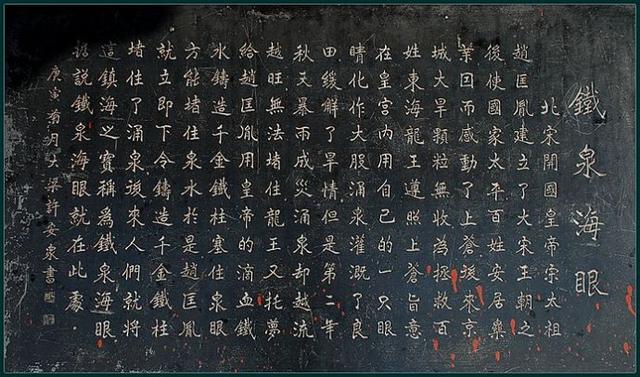 鐵泉海眼
北宋開國皇帝宋太祖
趙匡胤建立了大宋王朝之
後使國家太平百姓安居樂
業因而感動了上蒼後來京
城大旱顆粒無收為拯救百
姓東海龍王遵照上蒼旨意
在皇宮內用自己的一只眼
睛化作大股涌泉灌溉了良
田緩解了旱情但是第二年
秋天暴雨成災涌泉却越流
越旺無法堵住龍王又托夢
給趙匡胤用皇帝的滴血鐵
水鑄造千金鐵柱塞住泉眼
方能堵住泉水於是趙匡胤
就立即下令鑄造千金鐵柱
堵住了涌泉後來人們就將
這鎮海之寶稱為鐵泉海眼
據說鐵泉海眼就在此處。
庚寅菊月大梁許安泉書